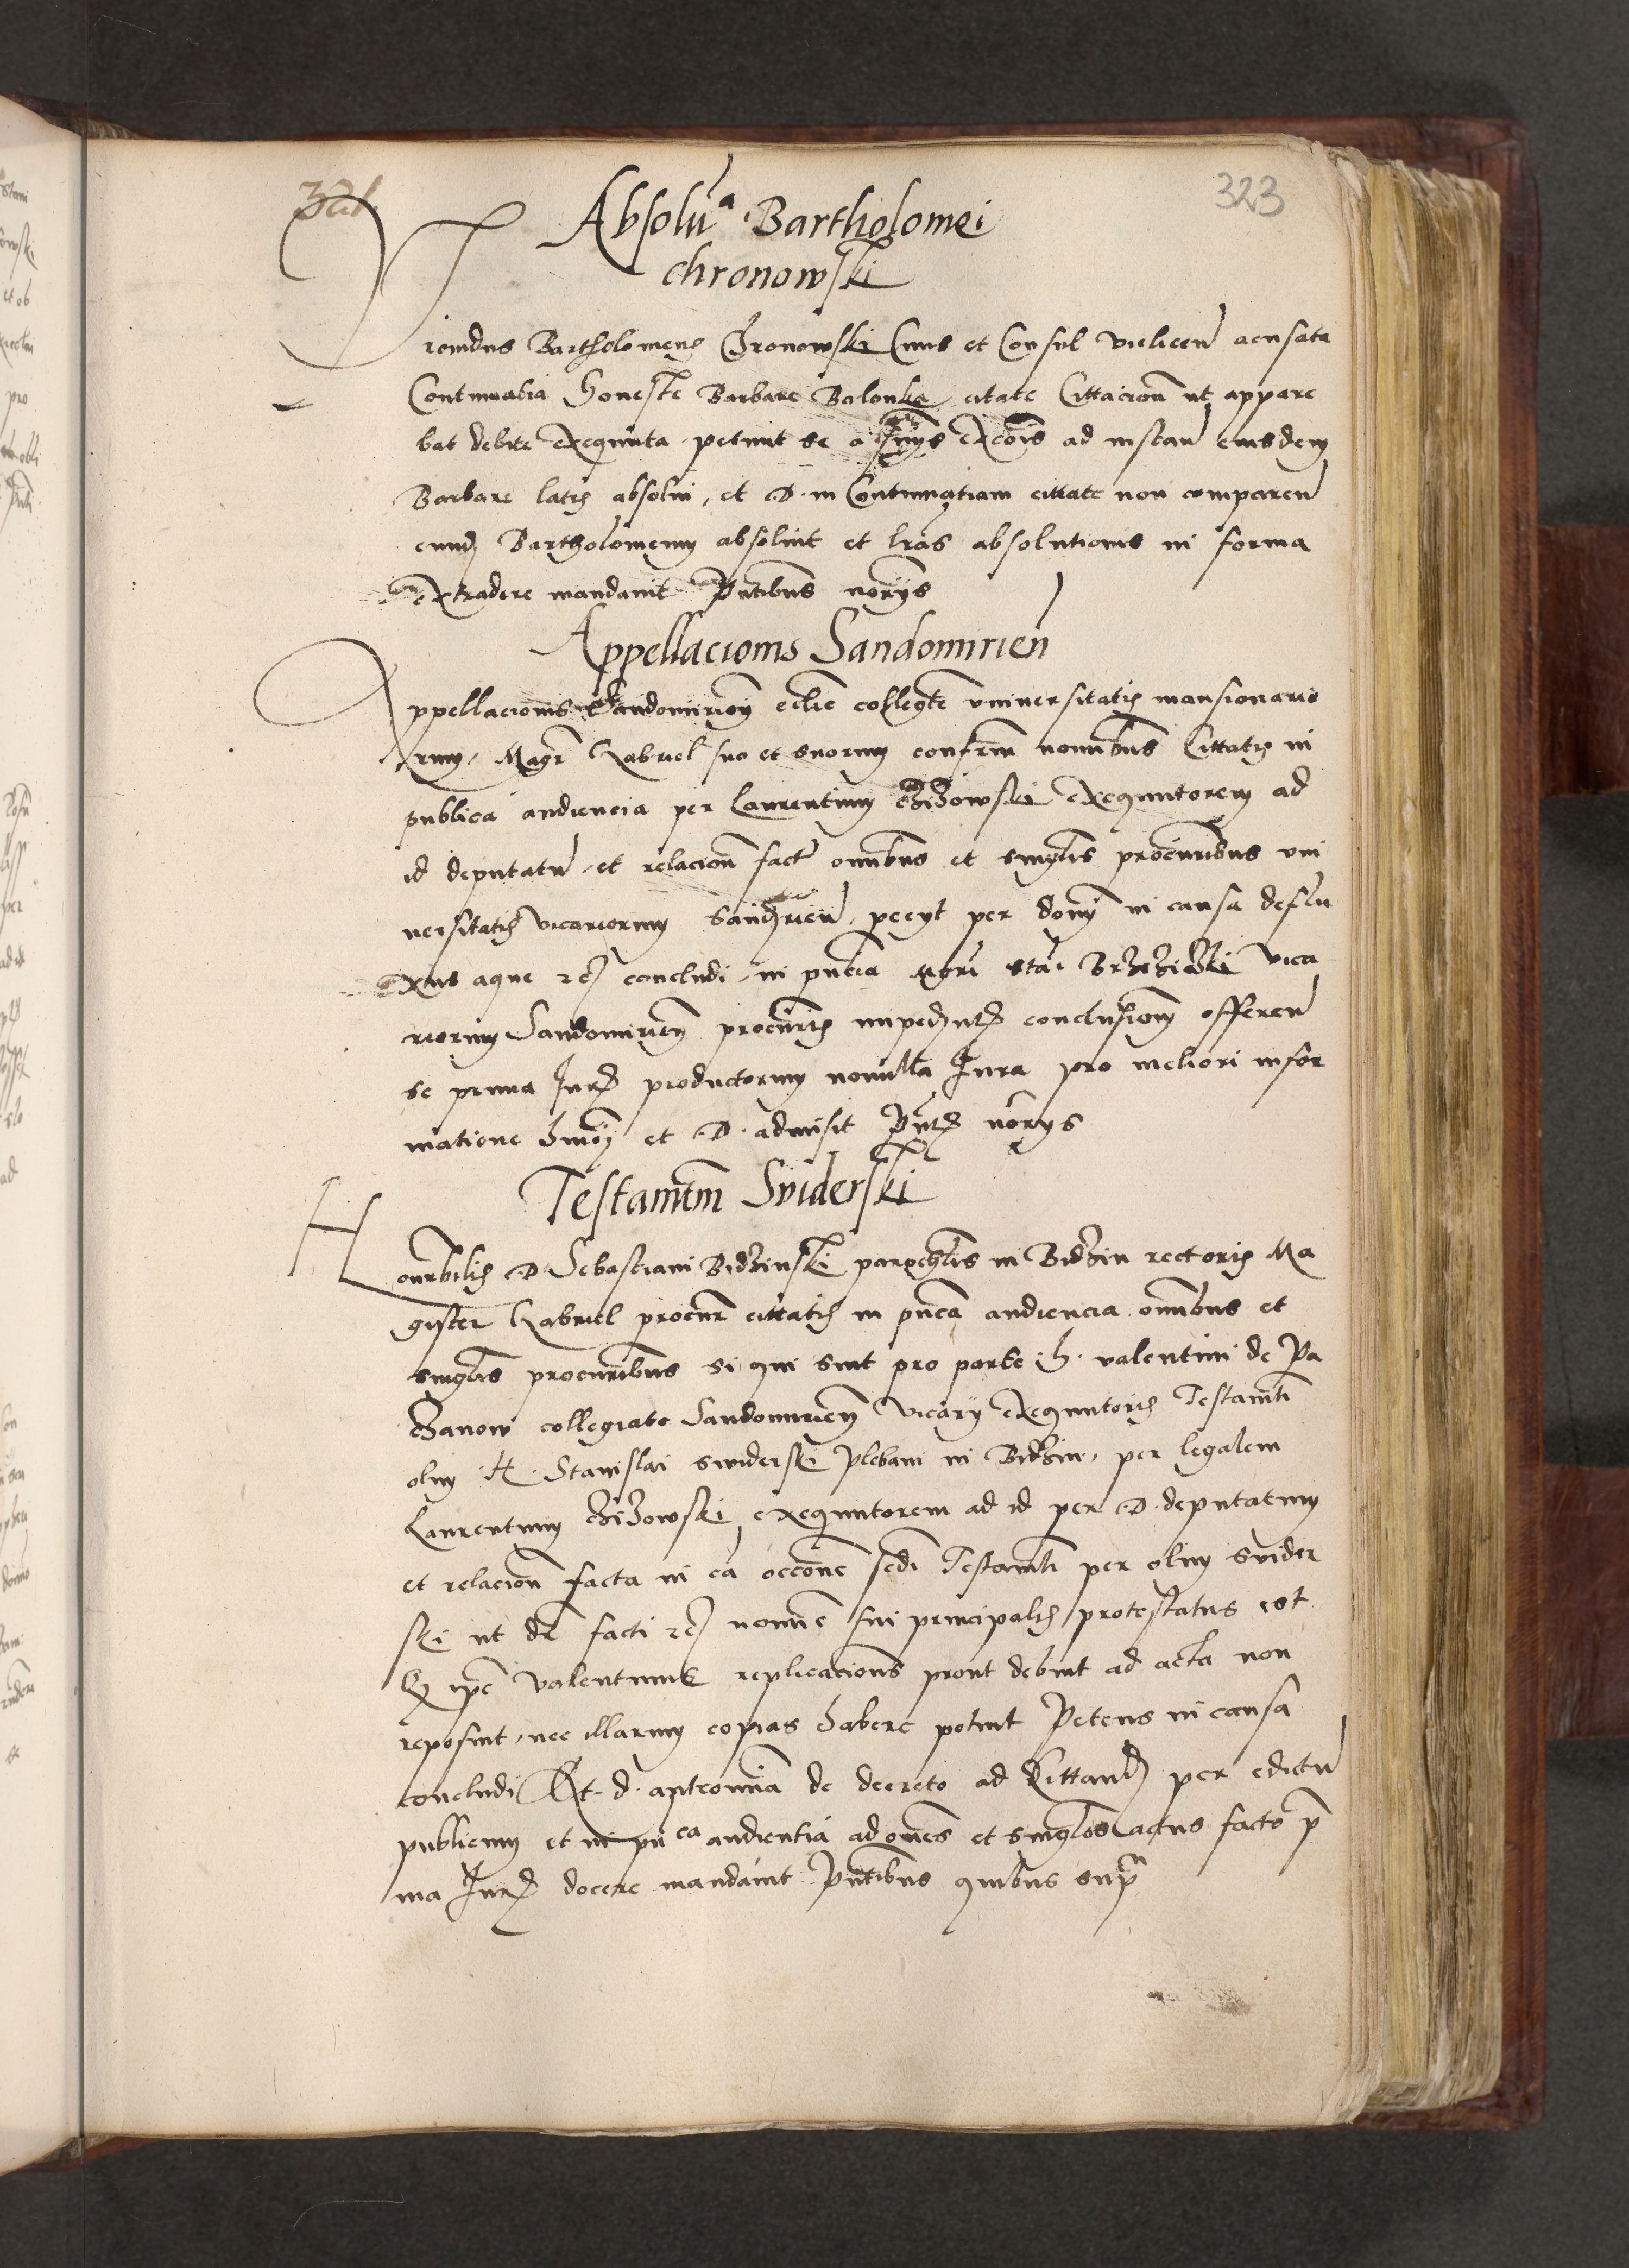 321
323
Absolu͠a Bartholomei
chronowski
rovidus Bartholomeus Chronowski Civis et Consul vielicen̄ acusata
Contumatia Honeste Barbare citate Cittacion̄ ut appare
bat debite exequuta petivit se a excōis ad instan̄ eiusdem
Barbare latis absolvi, et D. in Contumatiam cittate non comparen̄
eund Bartholomeum absolvit et lr̄as absolutionis in forma
extradere mandavit Pn̄tibus nōrys
Appellacionis Sandomirien̄
Appellacionis Sandomirien̄ eclīe collegt̄e universitatis mansionario
rum, Magr̄ Gabriel suo et suorum confrm̄ nominibus Cittatis in
publica audiencia per Laurentium exequutorem ad
id deputatū et relacion̄ fact̄ omnibus et singlis procurībus uni
versitatis vicariorum Sandrien̄, pecyt per dōm in causa
aque rēs concludi, in pn̄cia mgrī Sta͠i vica
riorum Sandomirien̄ procurīs impedient conclusionem offeren̄
se prima Jurs productorum nonnulla Jura pro meliori infor
matione hm̄oi et D. admisit Pn̄t nōrys
Testamt̄m Sviderski
Honrabilis D Sebastiani Bidzinski parochlis in Bidzin rectoris Ma
gister Gabriel procur̄ cittatis in pu͠ca audiencia omnibus et
singlis procuribus si qui sint pro parte H. valentini de Pa
czanow collegiate Sandomirien̄ vicary exequutoris Testamt̄i
olim H. Stanislai swiderski Plebani in Bidzin, per legalem
Laurentium exequutorem ad id per D. deputatum
et relacion̄ facta in ea occōne Testamt̄i per olim svider
ski ut dr̄ facti rēs nomīe sui principalis protestatus est
q ip̄e valentinus replicacionis prout debuit ad acta non
reposuit, nec illarum copias habere potuit Petens in causa
concludi Et d. de decreto ad Cittand per edictū
publicum et in pu͠ca audientia ad omēs et singlos actus facto p̄
ma Jurs docere mandavit Pn̄tibus quibus supra